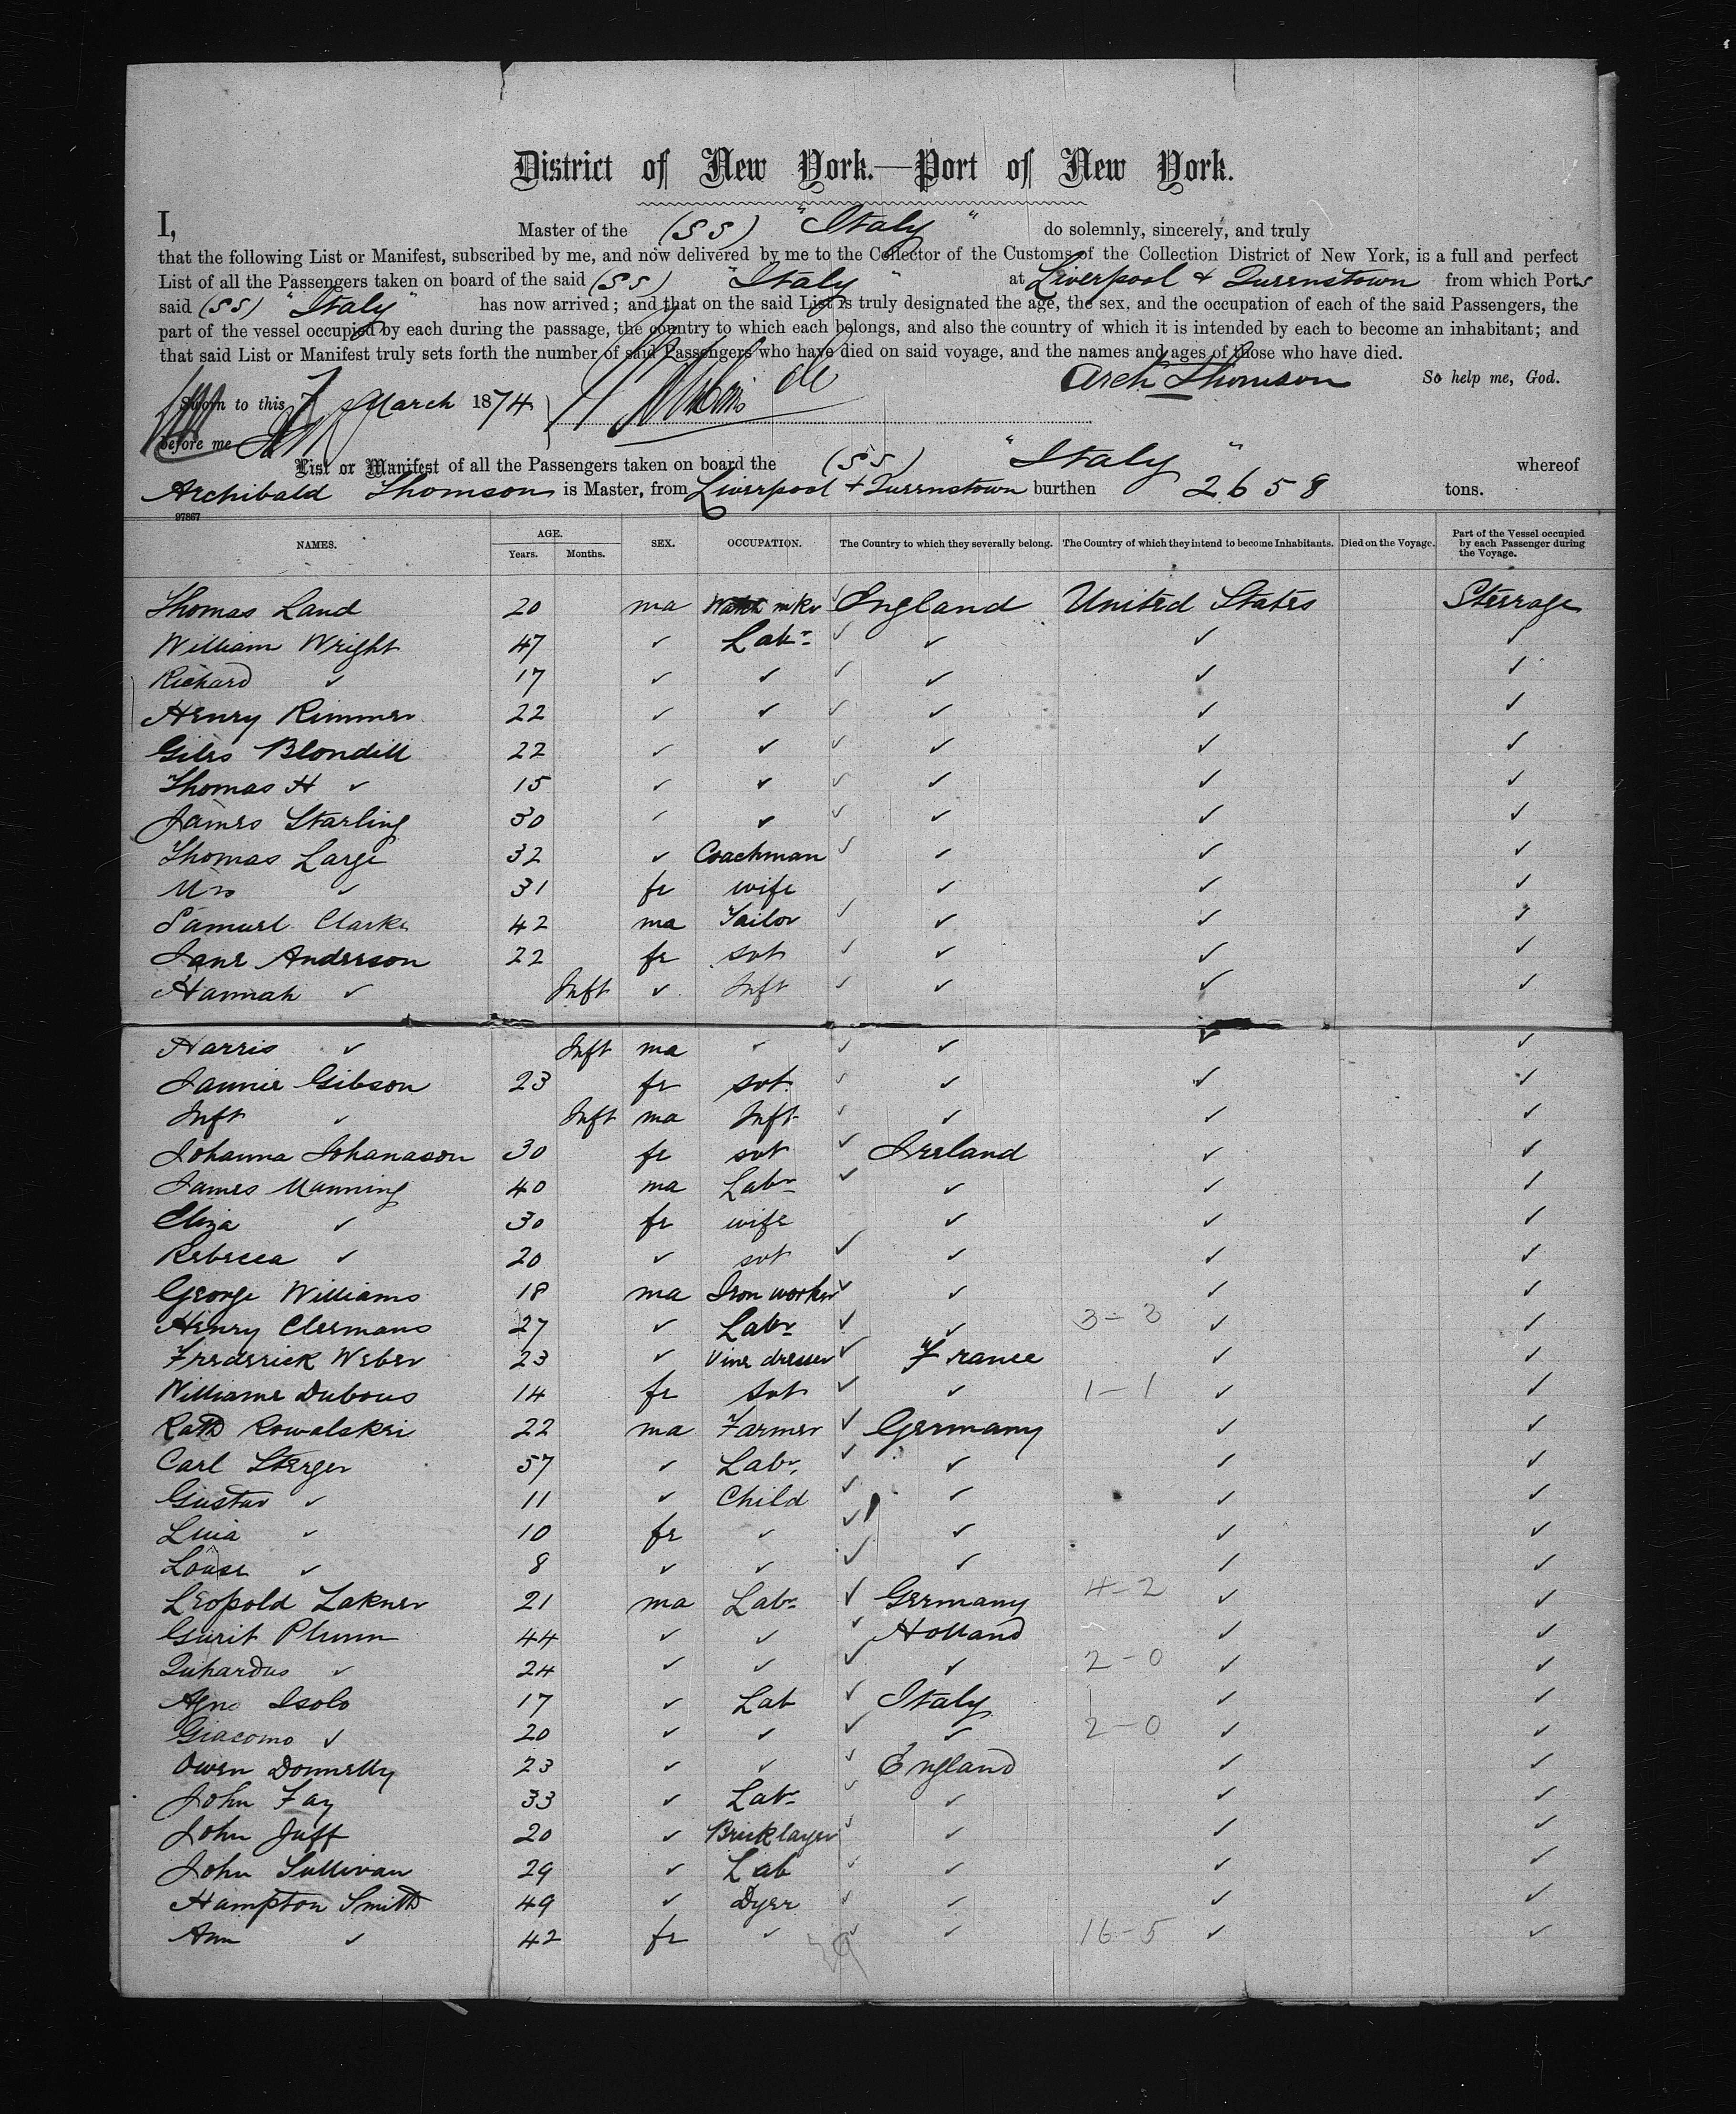 District of New York.—Port of New York.
I, Master of the (SS) "Italy" do solemnly, sincerely, and truly
that the following List or Manifest, subscribed by me, and now delivered by me to the Collector of the Customs of the Collection District of New York, is a full and perfect
List of all the Passengers taken on board of the said (SS) "Italy" at Liverpool & Queenstown from which Ports
said (SS) "Italy" has now arrived; and that on the said List is truly designated the age, the sex, and the occupation of each of the said Passengers, the
part of the vessel occupied by each during the passage, the country to which each belongs, and also the country of which it is intended by each to become an inhabitant; and
that said List or Manifest truly sets forth the number of said Passengers who have died on said voyage, and the names and ages of those who have died.
Arch Thomson So help me, God.
Sworn to this 7 March 1874
before me
List or Manifest of all the Passengers taken on board the (SS) "Italy" whereof
Archibald Thomson is Master, from Liverpool & Queenstown burthen 2658 tons.
97867
NAMES. AGE. Years. Months. SEX. OCCUPATION. The Country to which they severally belong. The Country of which they intend to become Inhabitants. Died on the Voyage. Part of the Vessel occupied by each Passenger during the Voyage.
Thomas Land 20 ma Watch mkr ✓ England United States Steerage
William Wright 47 ✓ Labr ✓ ✓ ✓ ✓
Richard ✓ 17 ✓ ✓ ✓ ✓ ✓ ✓
Henry Rimmer 22 ✓ ✓ ✓ ✓ ✓ ✓
Giles Blondell 22 ✓ ✓ ✓ ✓ ✓ ✓
Thomas H ✓ 15 ✓ ✓ ✓ ✓ ✓ ✓
James Starling 30 ✓ ✓ ✓ ✓ ✓ ✓
Thomas Large 32 ✓ Coachman ✓ ✓ ✓ ✓
Mrs ✓ 31 fe wife ✓ ✓ ✓
Samuel Clarke 42 ma Tailor ✓ ✓ ✓ ✓
Jane Anderson 22 fe svt ✓ ✓ ✓ ✓
Hannah ✓ Inft ✓ Inft ✓ ✓ ✓ ✓
Harris ✓ Inft ma ✓ ✓ ✓ ✓ ✓
Jannie Gibson 23 fe svt ✓ ✓ ✓ ✓
Inft ✓ Inft ma Inft ✓ ✓ ✓ ✓
Johanna Johanason 30 fe svt ✓ Ireland ✓ ✓
James Manning 40 ma Labr ✓ ✓ ✓ ✓
Eliza ✓ 30 fe wife ✓ ✓ ✓
Rebecca ✓ 20 ✓ svt ✓ ✓ ✓ ✓
George Williams 18 ma Iron worker ✓ ✓ ✓ ✓
Henry Clermans 27 ✓ Labr ✓ ✓ 3-3 ✓ ✓
Frederick Weber 23 ✓ Vine dresser ✓ France ✓ ✓
Williame Dubous 14 fe Svt ✓ ✓ 1-1 ✓ ✓
Kowalskei 22 ma Farmer ✓ Germany ✓ ✓
Carl Sterger 57 ✓ Labr ✓ ✓ ✓ ✓
Gustav ✓ 11 ✓ Child ✓ ✓ ✓ ✓
✓ 10 fe ✓ ✓ ✓ ✓ ✓
Louise ✓ 8 ✓ ✓ ✓ ✓ ✓ ✓
Leopold Lakner 21 ma Labr ✓ Germany 4-2 ✓ ✓
Gurit Plumm 44 ✓ ✓ ✓ Holland ✓ ✓
✓ 24 ✓ ✓ ✓ ✓ 2-0 ✓ ✓
Isolo 17 ✓ Lab ✓ Italy ✓ ✓
Giacomo ✓ 20 ✓ ✓ ✓ ✓ 2-0 ✓ ✓
Owen Donnelly 23 ✓ ✓ ✓ England ✓ ✓
John Fay 33 ✓ Labr ✓ ✓ ✓ ✓
John Juff 20 ✓ Bricklayer ✓ ✓ ✓ ✓
John Sullivan 29 ✓ Lab ✓ ✓ ✓ ✓
Hampton Smith 49 ✓ Dyer ✓ ✓ ✓ ✓
Ann ✓ 42 fe ✓ ✓ ✓ 16-5 ✓ ✓
39